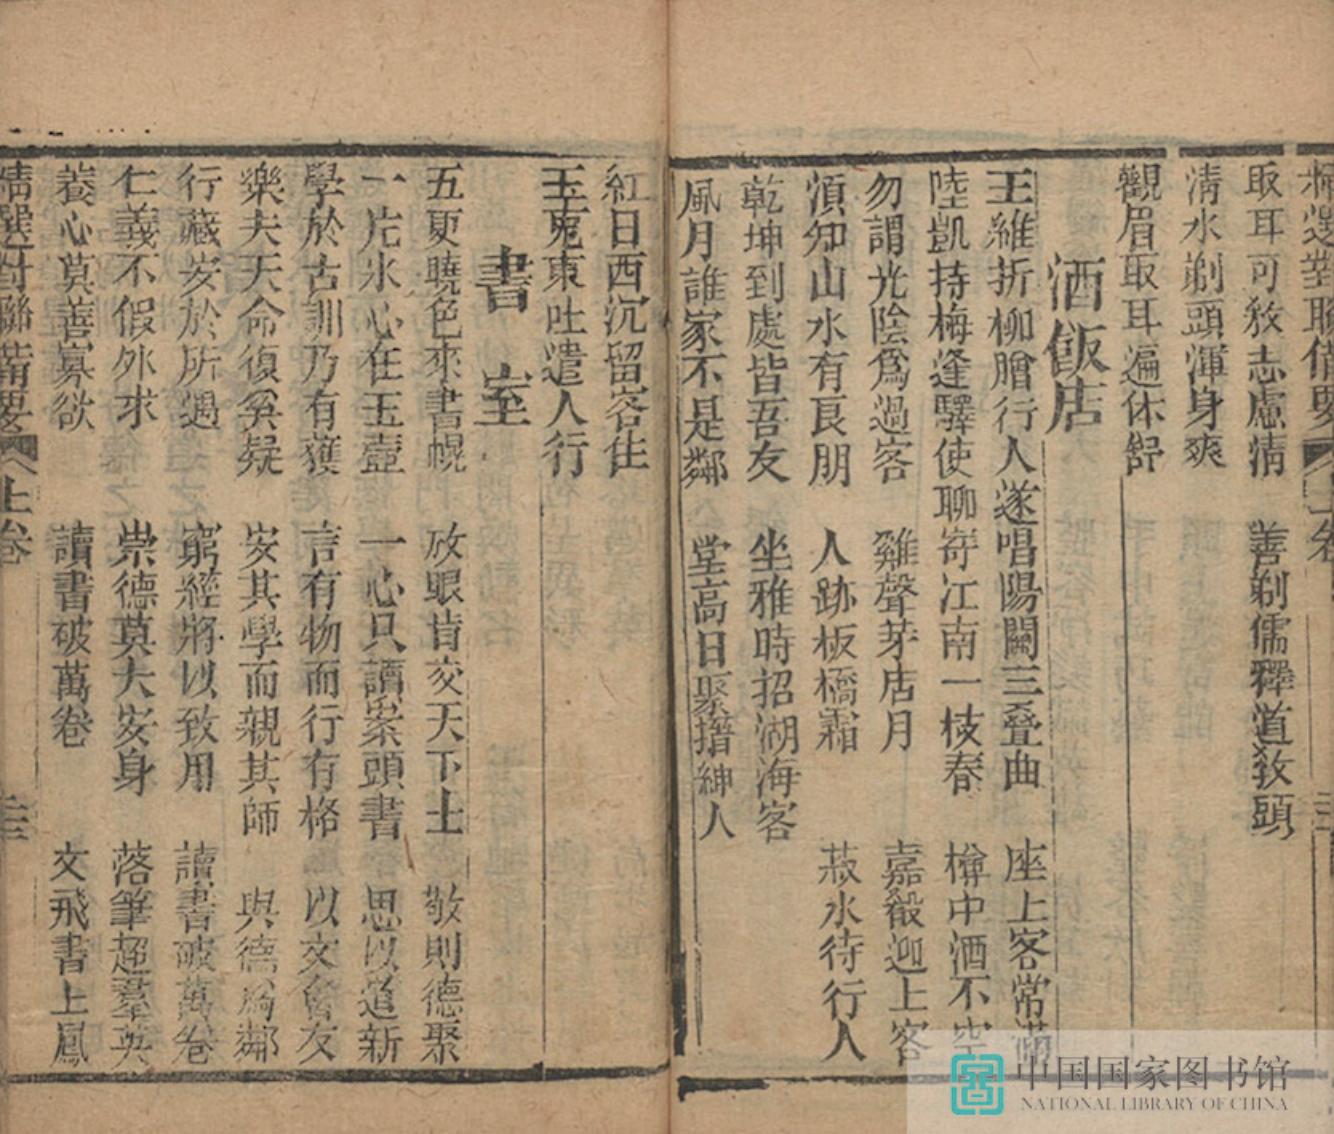 精選對聯備要 上卷
取耳可教志慮清 善剃儒釋道教頭
清水剃頭渾身爽
觀眉取耳遍休舒
酒飯店
王維折柳贈行人遂唱陽關三叠曲 座上客常滿
陸凱持梅逢驛使聊寄江南一枝春 樽中酒不空
勿謂光陰爲過客 雞聲茅店月 嘉殽迎上客
湏知山水有良朋 人跡板橋霜 菽水待行人
乾坤到處皆吾友 坐雅時招湖海客
風月誰家不是鄰 堂高日聚搢紳人
紅日西沉留客住
玉兎東吐遣人行
書室
五更曉色來書幌 放眼肯交天下士 敬則德聚
一片氷心在玉壺 一心只讀案頭書 思以道新
學於古訓乃有獲 言有物而行有格 以文會友
樂夫天命復奚疑 安其學而親其師 與德爲鄰
行藏安於所遇 窮經將以致用 讀書破萬卷
仁義不假外求 崇德莫大安身 落筆超羣英
養心莫善寡欲 讀書破萬卷 文飛書上鳳
精選對聯備要 上卷
中国国家图书馆
NATIONAL LIBRARY OF CHINA